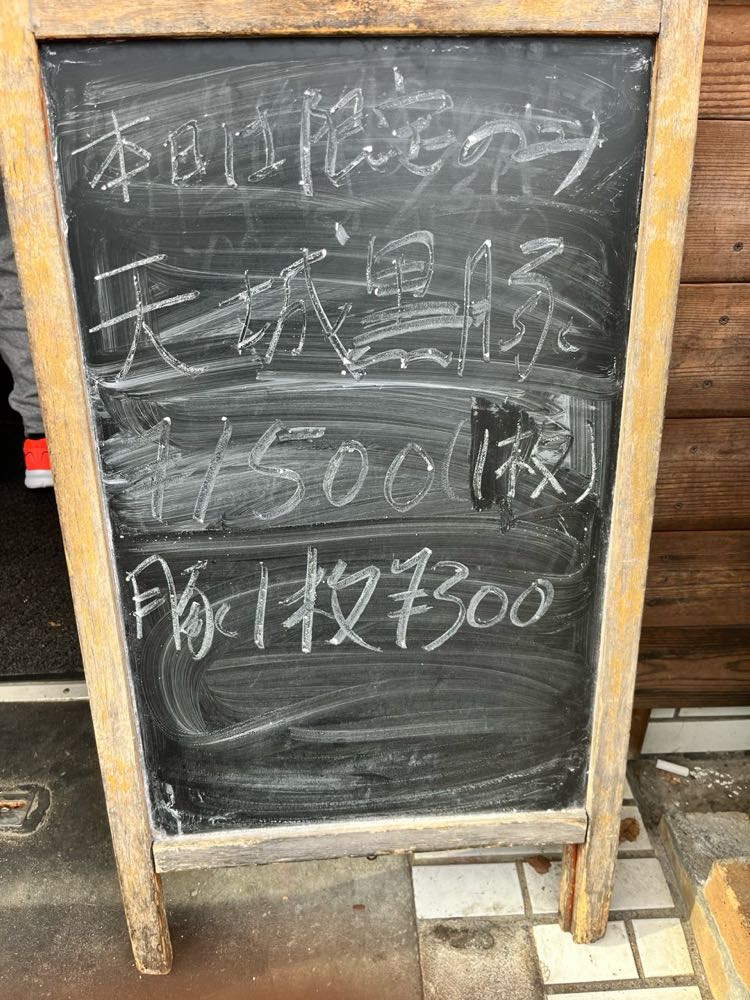 本日は限定のみ
天城黒豚
¥1500(1枚)
豚1枚¥300